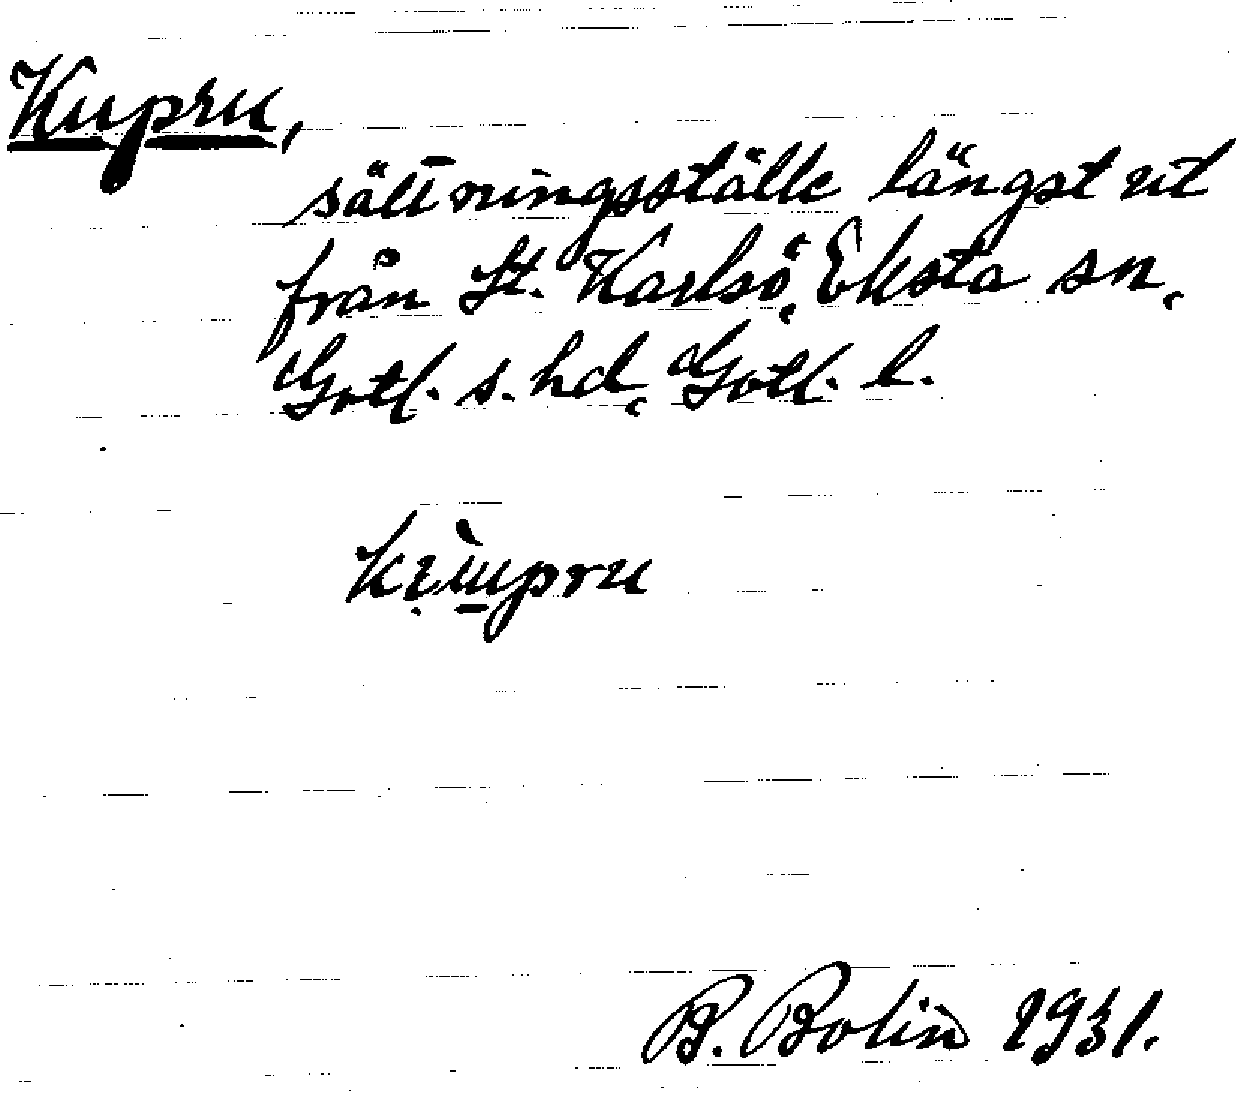 Kupru,
sättningsställe längst ut
från St. Karlsö, Eksta sn,
Gotl. s. hd, Gotl. l.
B. Bolin 1931.